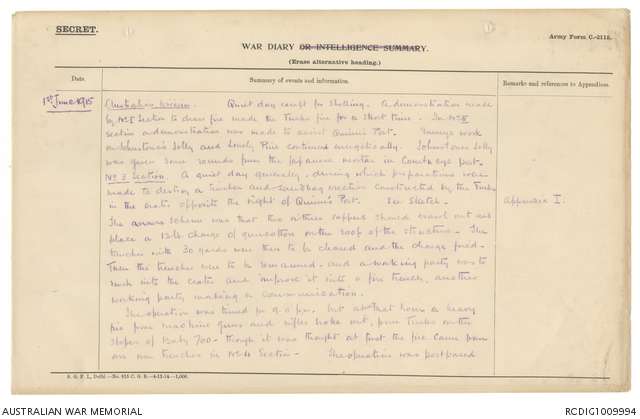 SECRET.
Army Form C.-2118.
WAR DIARY OR INTELLIGENCE SUMMARY.
(Erase alternative heading.)
Date.
Summary of events and information.
Remarks and references to Appendices.
1st June 1915
Quiet day except for shelling. A demonstration made
by No I Section to draw fire made the Turks fire for a short time. In No III
section a demonstration was made to assist Quinn's Post. Enemy's work
on Johnstone's Jolly and Lonely Pine continued energetically. Johnstones Jolly
was given some rounds from the Japanese mortar in Courtneys post.
No 3 Section. A quiet day generally, during which preparations were
made to destroy a trench and sandbag erection constructed by the Turks
in the crater opposite the right of Quinn's Post. See sketch.
Appendix I.
The scheme was that two or three sappers should crawl out and
place a 12 lb charge of guncotton on the roof of the structure. The
trenches with 30 yards were then to be cleared and the charge fired.
Then the trenches were to be remanned and a working party was to
rush into the crater and improve it into a fire trench, another
working party making a communication.
The operation was timed for 9.0 p.m. but at that hour a heavy
fire from machine guns and rifles broke out, from Turks on the
slopes of Baby 700 - though it was thought at first the fire came from
our own trenches in No 4 Section - The operation was postponed
S. G. P. I., Delhi.—No. 815 C. G. S.—4-12-14—1,000.
AUSTRALIAN WAR MEMORIAL
RCDIG1009994